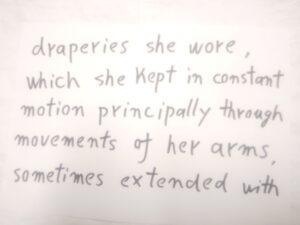 draperies she wore,
which she kept in constant
motion principally through
movements of her arms,
sometimes extended with